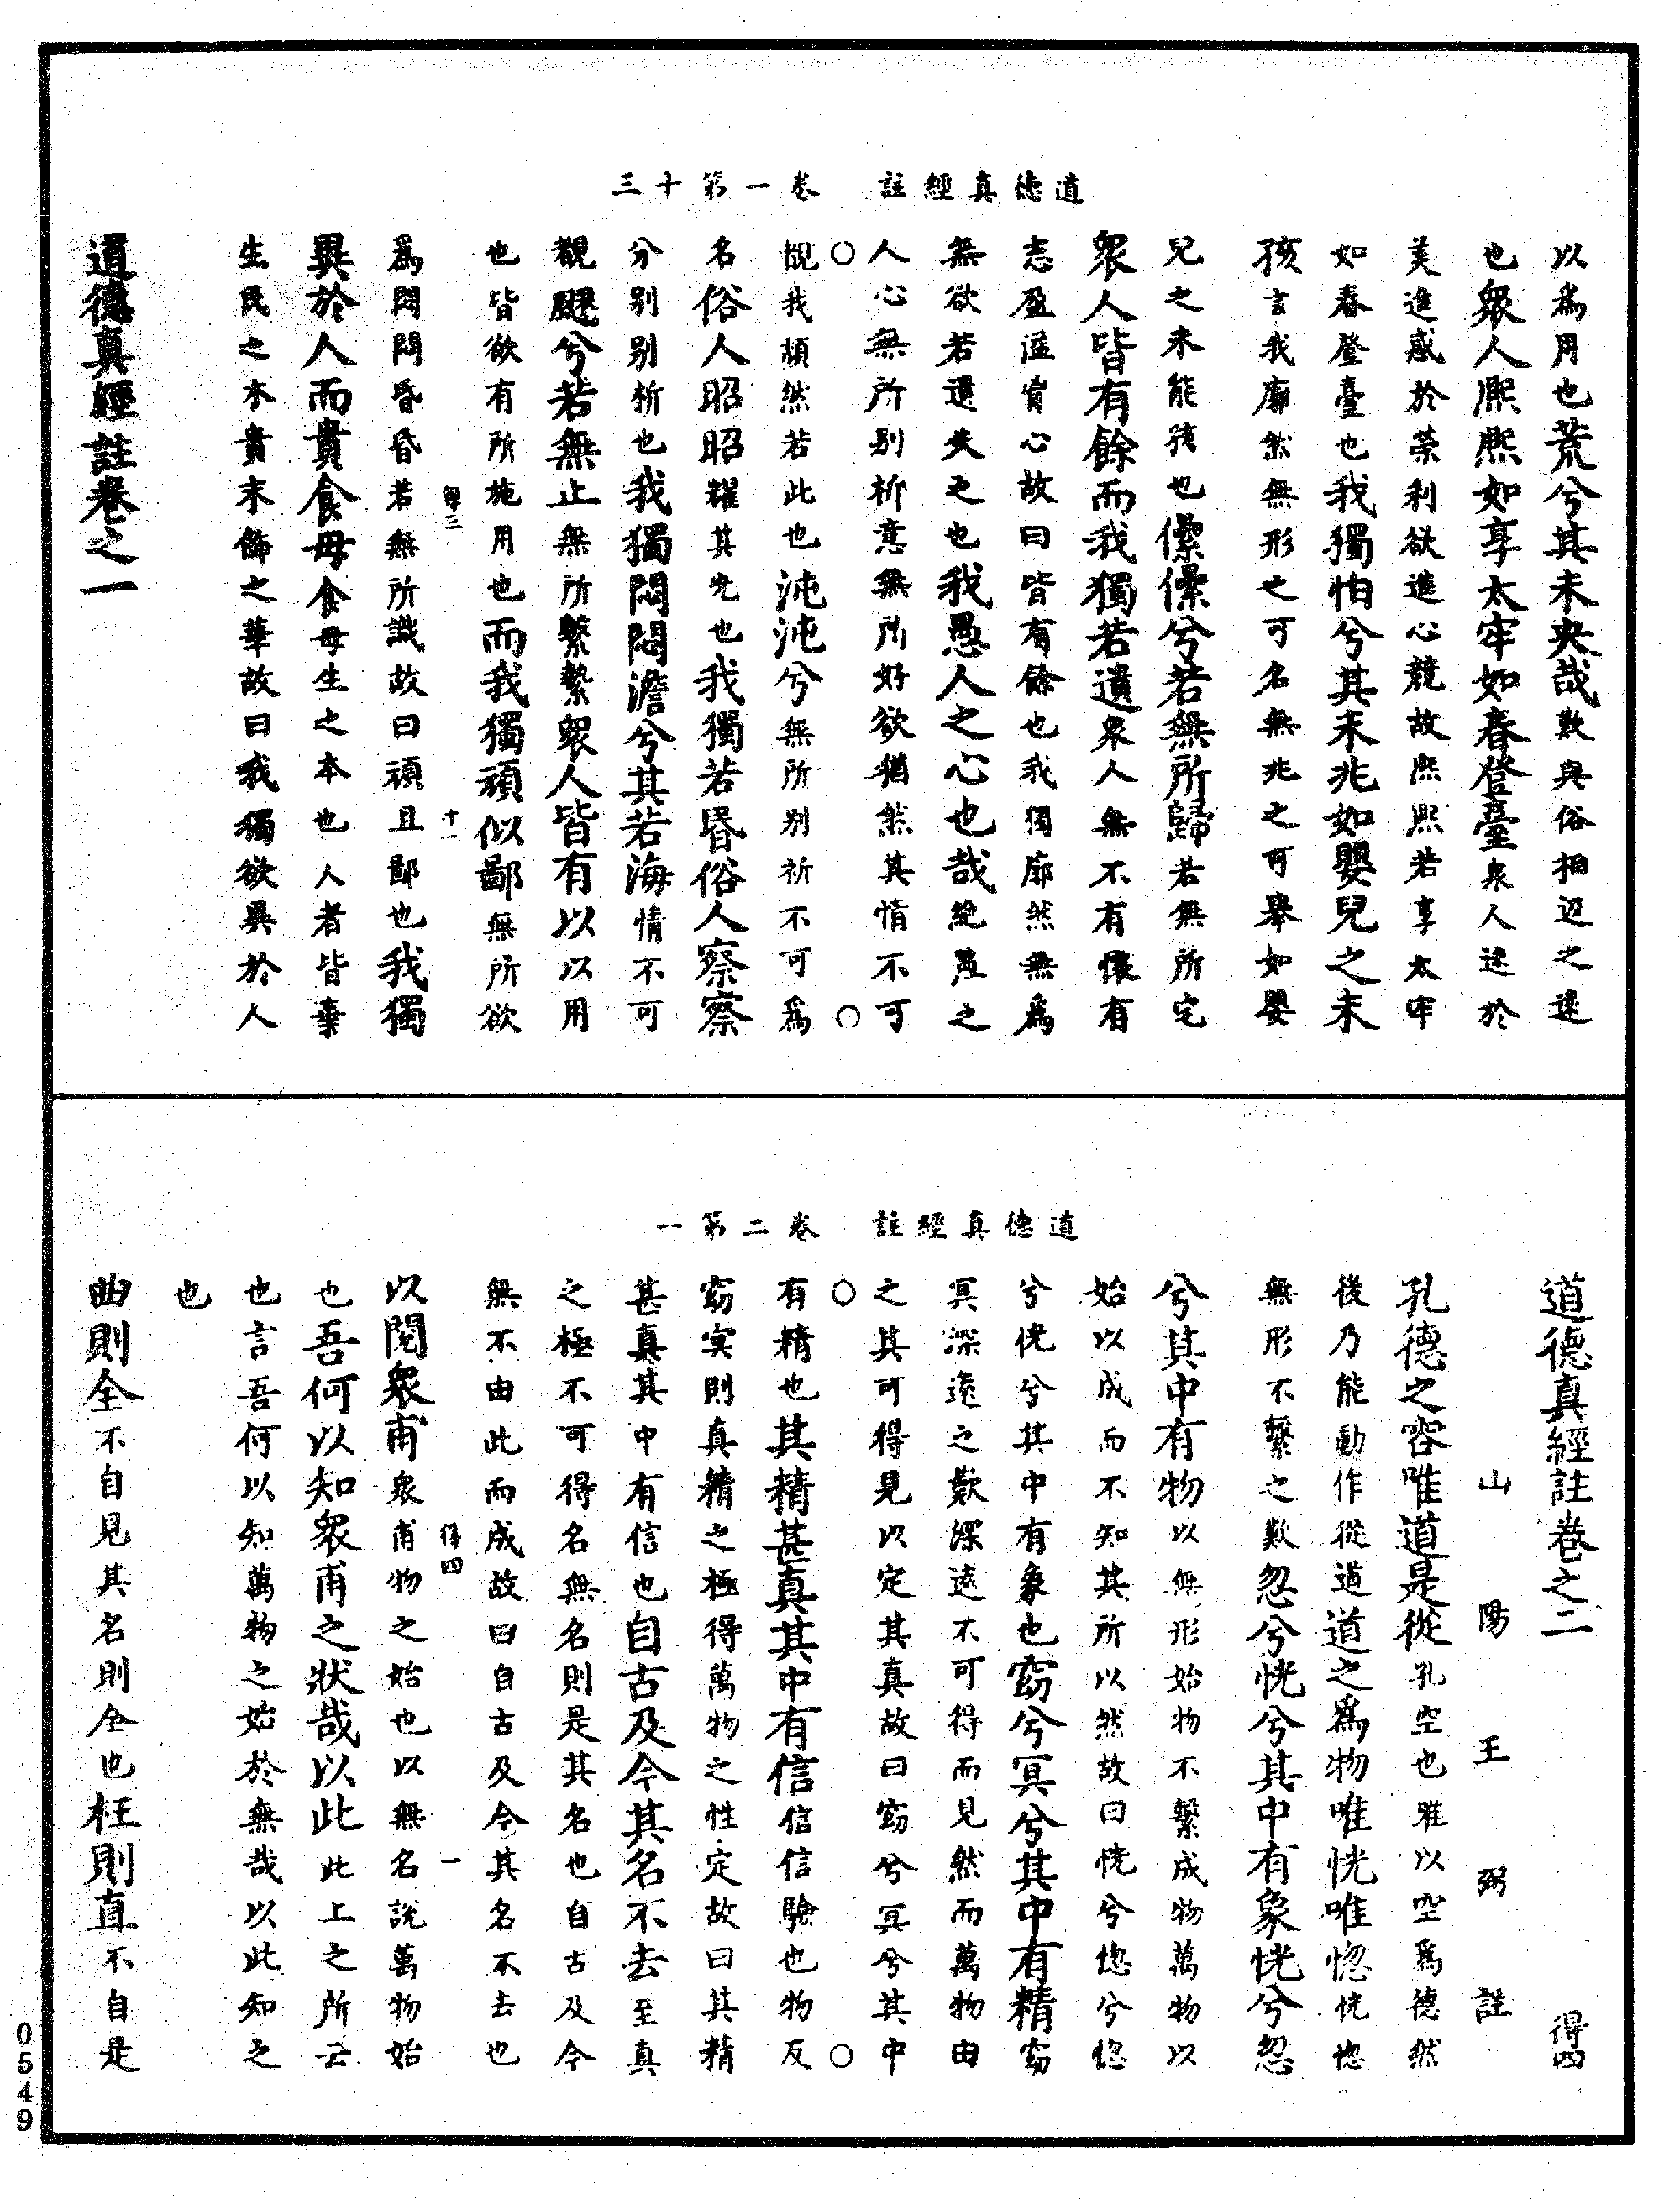 道德真經註　卷一第十三
以為用也荒兮其未央哉歎與俗相返之遠
也衆人熙熙如享太牢如春登臺衆人迷於
美進惑於榮利欲進心競故熙熙若享太牢
如春登臺也我獨怕兮其未兆如嬰兒之未
孩言我廓然無形之可名無兆之可舉如嬰
兒之未能孩也儽儽兮若無所歸若無所宅
衆人皆有餘而我獨若遺衆人無不有懷有
志盈溢胷心故曰皆有餘也我獨廓然無為
無欲若遺失之也我愚人之心也哉絕愚之
人心無所別析意無所好欲猶然其情不可
覩我頹然若此也沌沌兮無所別析不可為
名俗人昭昭耀其光也我獨若昏俗人察察
分別別析也我獨悶悶澹兮其若海情不可
覩飂兮若無止無所繫縶衆人皆有以以用
也皆欲有所施用也而我獨頑似鄙無所欲
得三　十一
為悶悶昏昏若無所識故曰頑且鄙也我獨
異於人而貴食母食母生之本也人者皆棄
生民之本貴末飾之華故曰我獨欲異於人
道德真經註卷之一
道德真經註　卷二第一
道德真經註卷之二　得四
山陽王弼註
孔德之容唯道是從孔空也唯以空為德然
後乃能動作從道道之為物唯恍唯惚恍惚
無形不繫之歎忽兮恍兮其中有象恍兮忽
兮其中有物以無形始物不繫成物萬物以
始以成而不知其所以然故曰恍兮惚兮惚
兮恍兮其中有象也窈兮冥兮其中有精窈
冥深遠之歎深遠不可得而見然而萬物由
之其可得見以定其真故曰窈兮冥兮其中
有精也其精甚真其中有信信信驗也物反
窈冥則真精之極得萬物之性定故曰其精
甚真其中有信也自古及今其名不去至真
之極不可得名無名則是其名也自古及今
無不由此而成故曰自古及今其名不去也
得四　一
以閱衆甫衆甫物之始也以無名說萬物始
也吾何以知衆甫之狀哉以此此上之所云
也言吾何以知萬物之始於無哉以此知之
也
曲則全不自見其名則全也枉則直不自是
0549